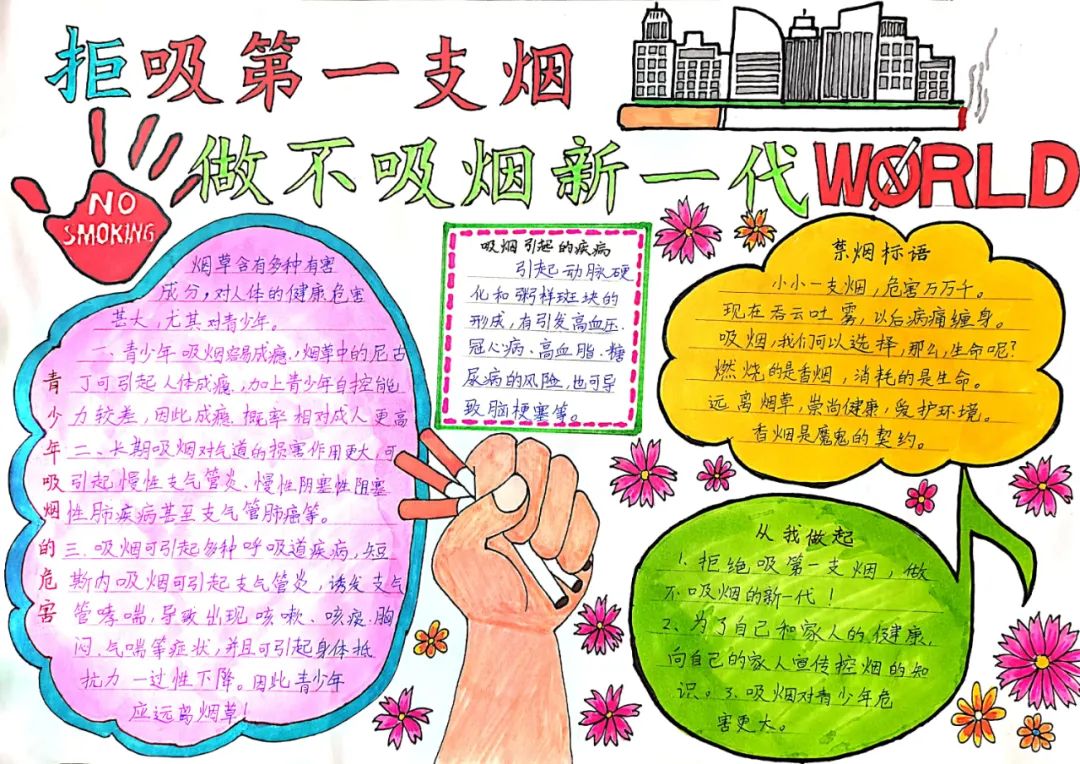 拒吸第一支烟
做不吸烟新一代WORLD
NO
SMOKING
青少年吸烟的危害
烟草含有多种有害
成分,对人体的健康危害
甚大,尤其对青少年。
一、青少年吸烟易成瘾,烟草中的尼古
丁可引起人体成瘾,加上青少年自控能
力较差,因此成瘾概率相对成人更高
二、长期吸烟对气道的损害作用更大,可
引起慢性支气管炎、慢性阴塞性阻塞
性肺疾病甚至支气管肺癌等。
三.吸烟可引起多种呼吸道疾病,短
斯内吸烟可引起支气管炎,诱发支气
管哮喘,导致出现咳嗽、咳痰、胸
闷、气喘等症状,并且可引起身体抵
抗力一过性下降。因此青少年
应远离烟草!
吸烟引起的疾病
引起动脉硬
化和粥样斑块的
形成,有引发高血压.
冠心病、高血脂、糖
尿病的风险,也可导
致脑梗塞等。
禁烟标语
小小一支烟,危害万万千。
现在吞云吐雾,以后病痛缠身。
吸烟,我们可以选择,那么,生命呢?
燃烧的是香烟,消耗的是生命。
远离烟草,崇尚健康,爱护环境。
香烟是魔鬼的契约。
从我做起
1.拒绝吸第一支烟,做
不吸烟的新一代!
2、为了自己和家人的健康,
向自己的家人宣传控烟的知
识。3.吸烟对青少年危
害更大。